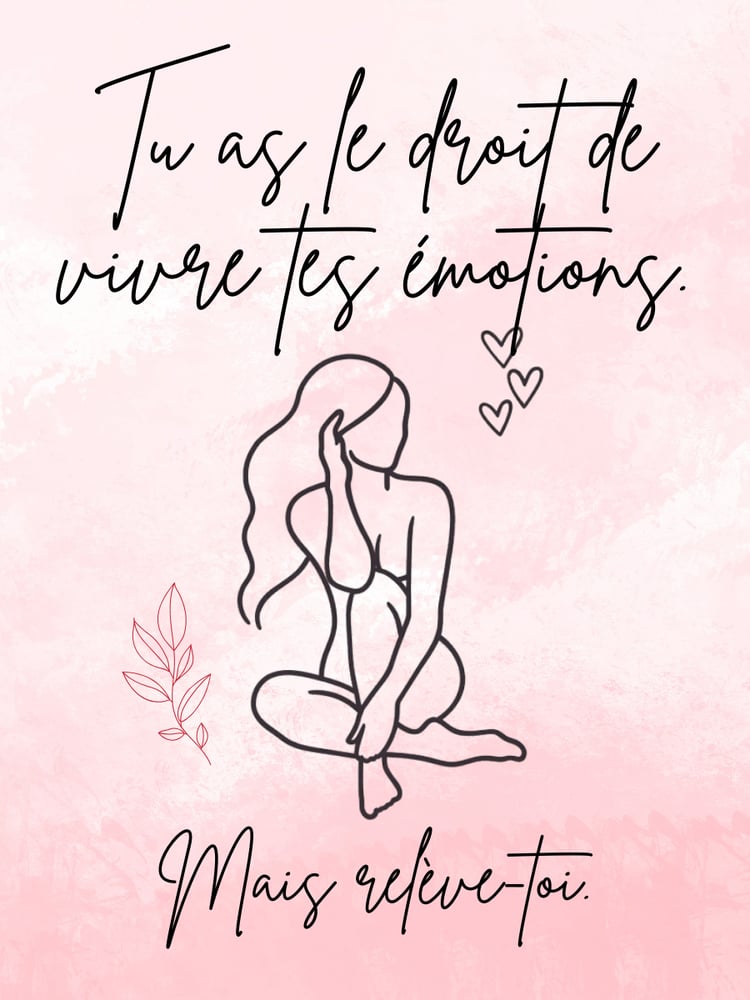 Tu as le droit de
vivre tes émotions.
Mais relève-toi.